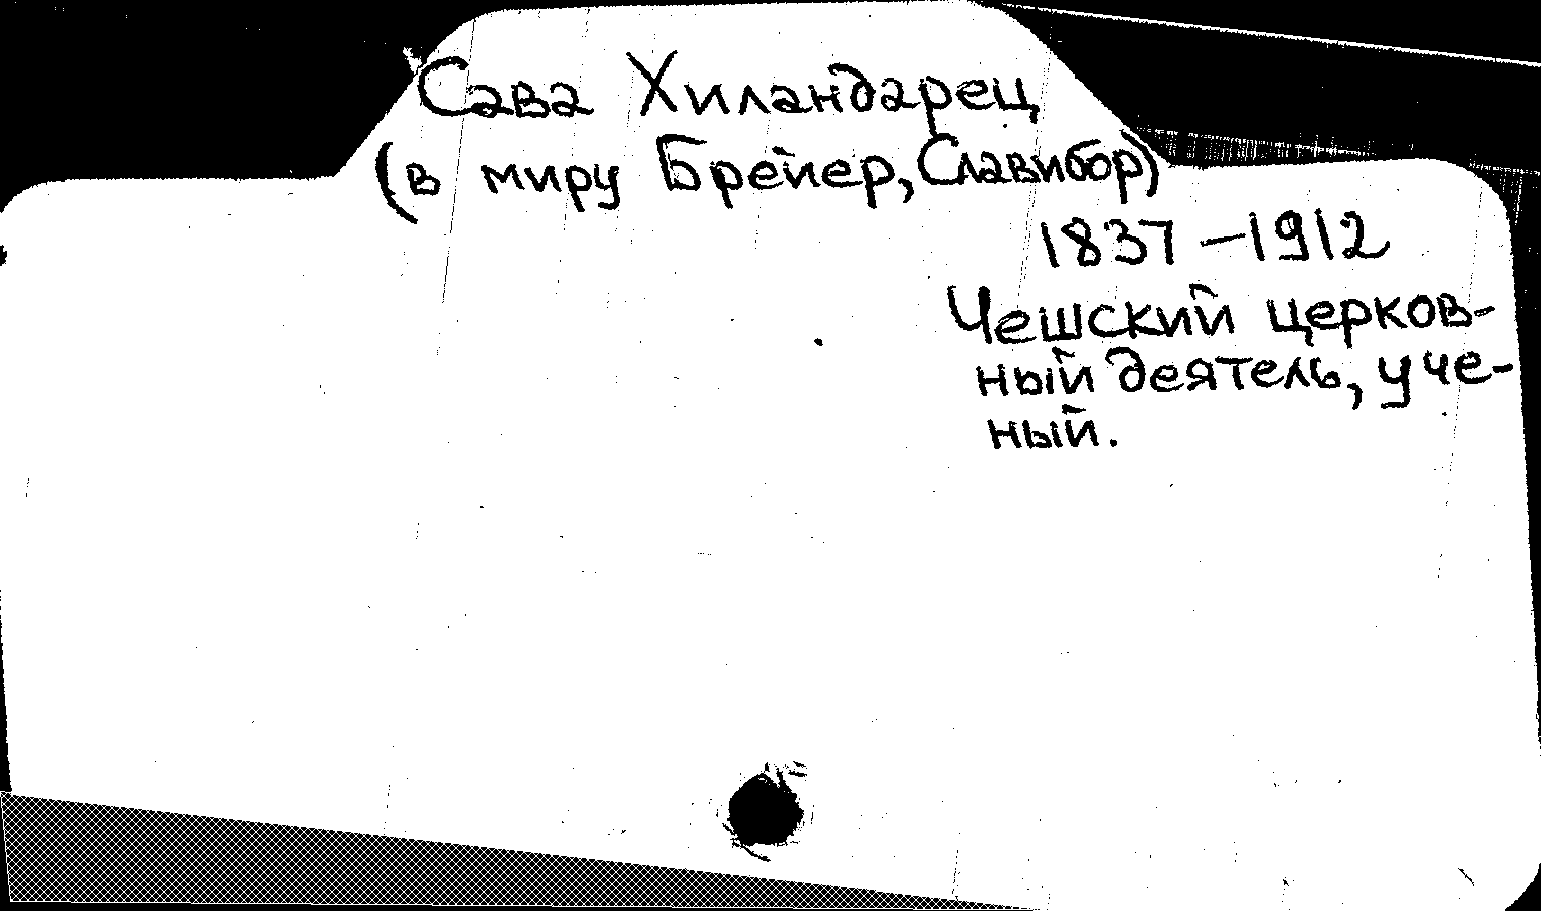 Сава Хиландарец
(в миру Брейер, Славибор)
1837–1912
Чешский церков-
ный деятель, уче-
ный.